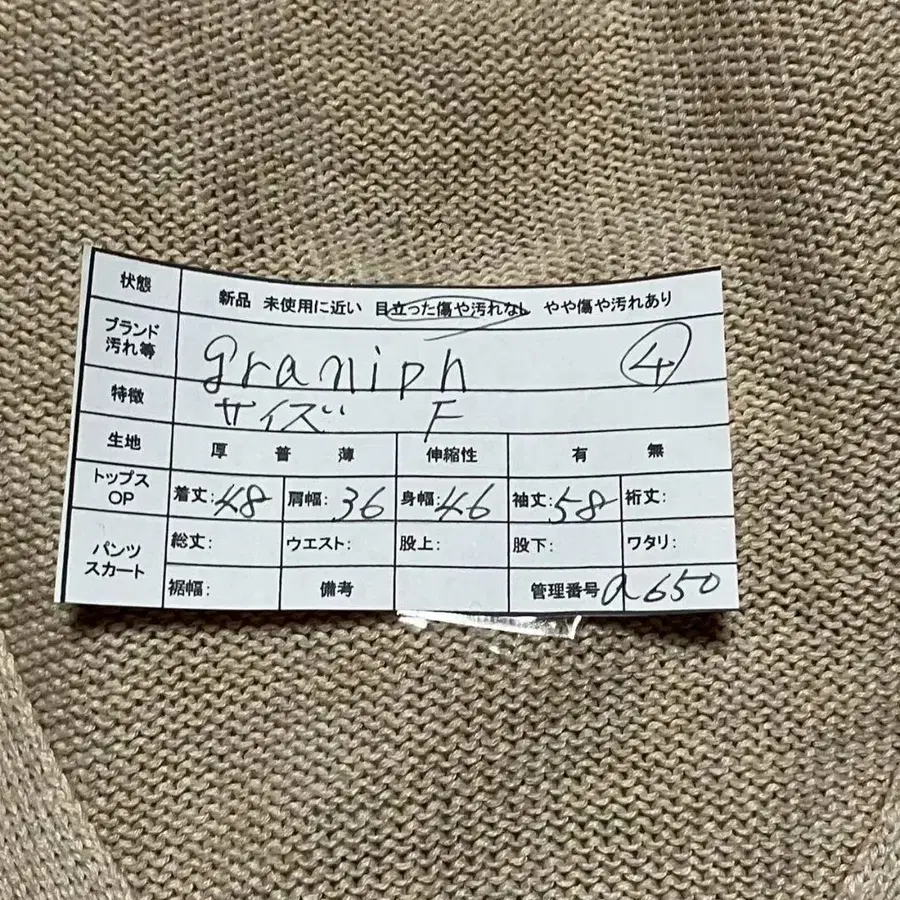 状態 新品 未使用に近い 目立った傷や汚れなし やや傷や汚れあり
ブランド 汚れ等 graniph ④
特徴 サイズ F
生地 厚 普 薄 伸縮性 有 無
トップス OP 着丈:48 肩幅:36 身幅:46 袖丈:58 裄丈:
パンツ スカート 総丈: ウエスト: 股上: 股下: ワタリ:
裾幅: 備考 管理番号 a650